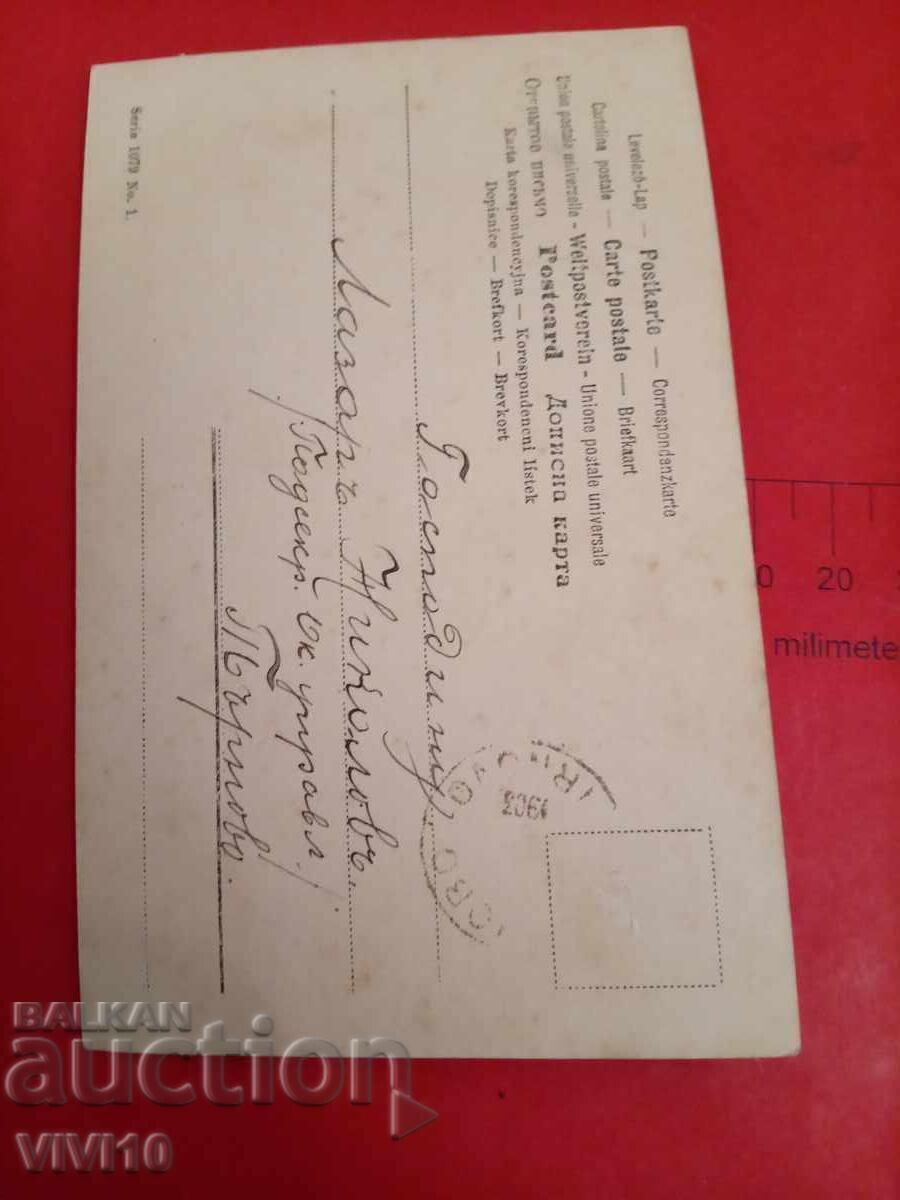 Levelező-Lap — Postkarte — Correspondanzkarte
Cartolina postale — Carte postale — Briefkaart
Union postale universelle - Weltpostverein - Unione postale universale
Открытое письмо Postcard Дописна карта
Karta korespondencyjna — Korespondencni listek
Dopisnice — Brefkort — Brevkort
Господину
Лазаръ Николовъ.
/Подсекр. Ок. управл./
Търново.
Serie 1079 No. 1.
1903
20
milimete
BALKAN
auction
VIVI10